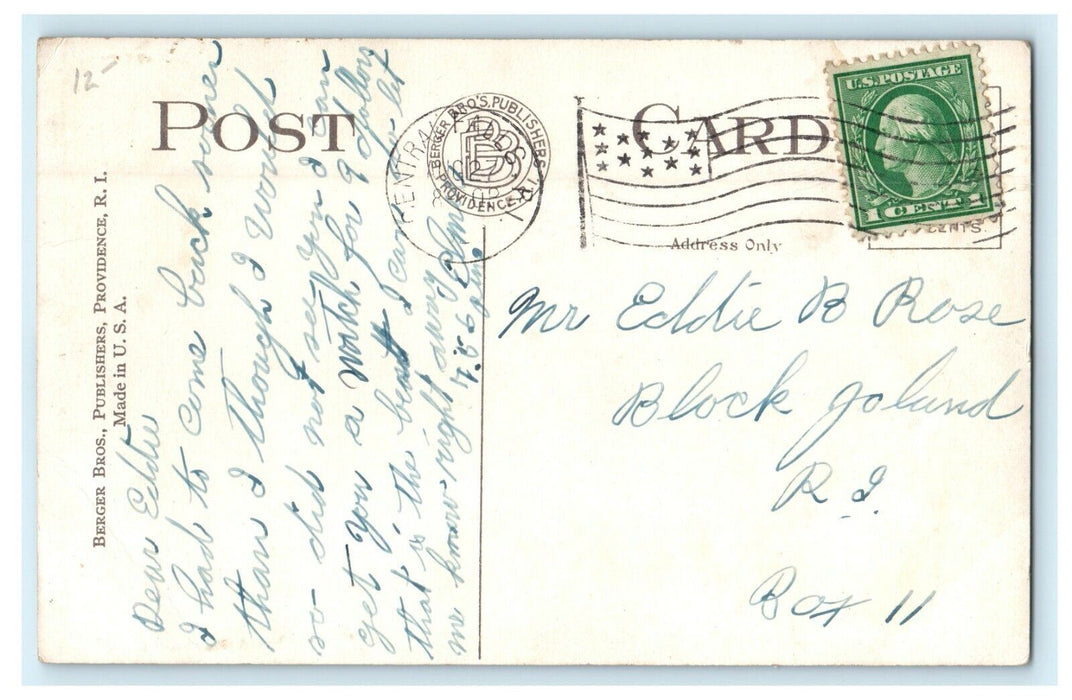 12-
POST CARD
BERGER BRO'S. PUBLISHERS
PROVIDENCE, R.I.
U.S. POSTAGE
1 CENT 1
Address Only
CENTS.
BERGER BROS., PUBLISHERS, PROVIDENCE, R. I.
Made in U. S. A.
Dear Eddie
I had to come back sooner
than I though I would
so did not see you I can
get you a watch for 9 dollars
that is the best I can do let
me know right away
Mr Eddie B Rose
Block Island
R I.
Box 11